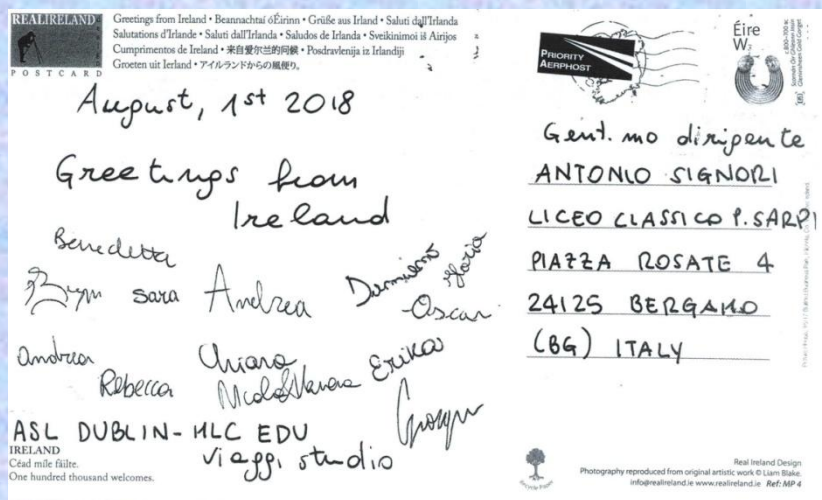 REALIRELAND
POSTCARD
Greetings from Ireland • Beannachtaí óÉirinn • Grüße aus Irland • Saluti dall'Irlanda
Salutations d'Irlande • Saluti dall'Irlanda • Saludos de Irlanda • Sveikinimoi iš Airijos
Cumprimentos de Ireland • 来自爱尔兰的问候 • Posdravlenija iz Irlandiji
Groeten uit Ierland • アイルランドからの風便り。
August, 1st 2018
Greetings from
Ireland
Benedetta
Sara Andrea Damiano Gloria
Oscar
Andrea Chiara Erika
Rebecca
ASL DUBLIN - HLC EDU
viaggi studio
IRELAND
Céad míle fáilte.
One hundred thousand welcomes.
PRIORITY
AERPHOST
Éire
W
Gent.mo dirigente
ANTONIO SIGNORI
LICEO CLASSICO P. SARPI
PIAZZA ROSATE 4
24125 BERGAMO
(BG) ITALY
Recycle Paper
Real Ireland Design
Photography reproduced from original artistic work © Liam Blake.
info@realireland.ie www.realireland.ie Ref: MP 4